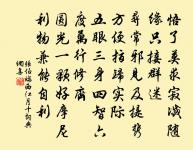 悟了莫求寂滅隨
緣只接群迷
尋常邪見及提攜
方便指歸實際
五眼三身四智六
度萬行修齊
圓光一顆好摩尼
利物兼能自利
張伯端西江月